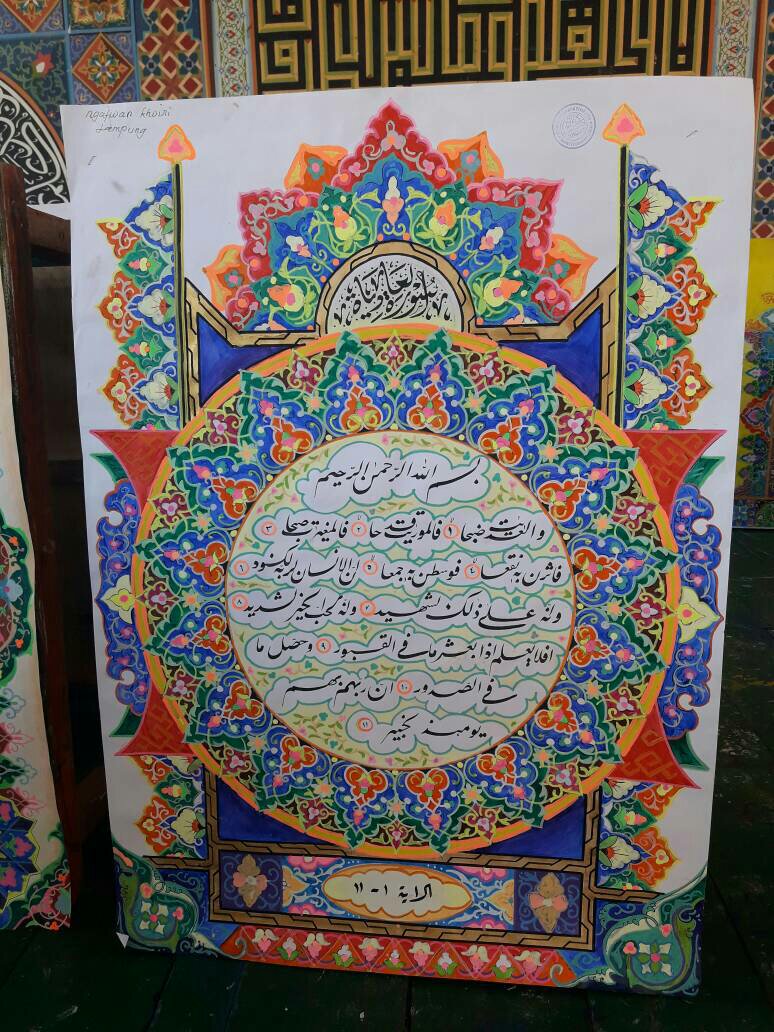 ngatwan khoiri
Lampung
سورة العاديات
بسم الله الرحمن الرحيم
والعٰديٰت ضبحا ١ فالموريٰت قدحا ٢ فالمغيرٰت صبحا ٣
فاثرن به نقعا ٤ فوسطن به جمعا ٥ ان الانسان لربه لكنود ٦
وانه على ذٰلك لشهيد ٧ وانه لحب الخير لشديد ٨
افلا يعلم اذا بعثر ما فى القبور ٩ وحصل ما
فى الصدور ١٠ ان ربهم بهم
يومئذ لخبير ١١
الاية ١ - ١١